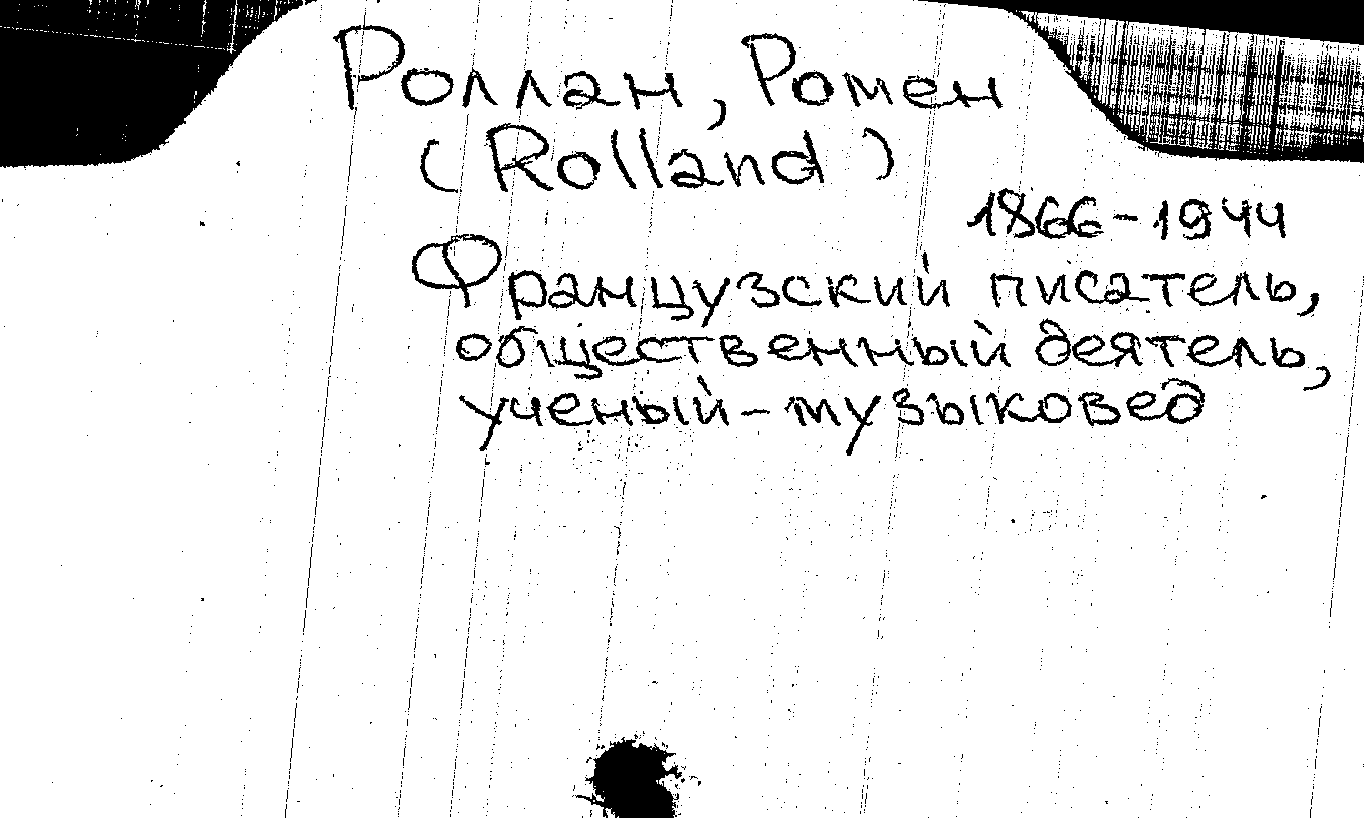 Роллан, Ромен
(Rolland)
1866-1944
Французский писатель,
общественный деятель,
ученый-музыковед